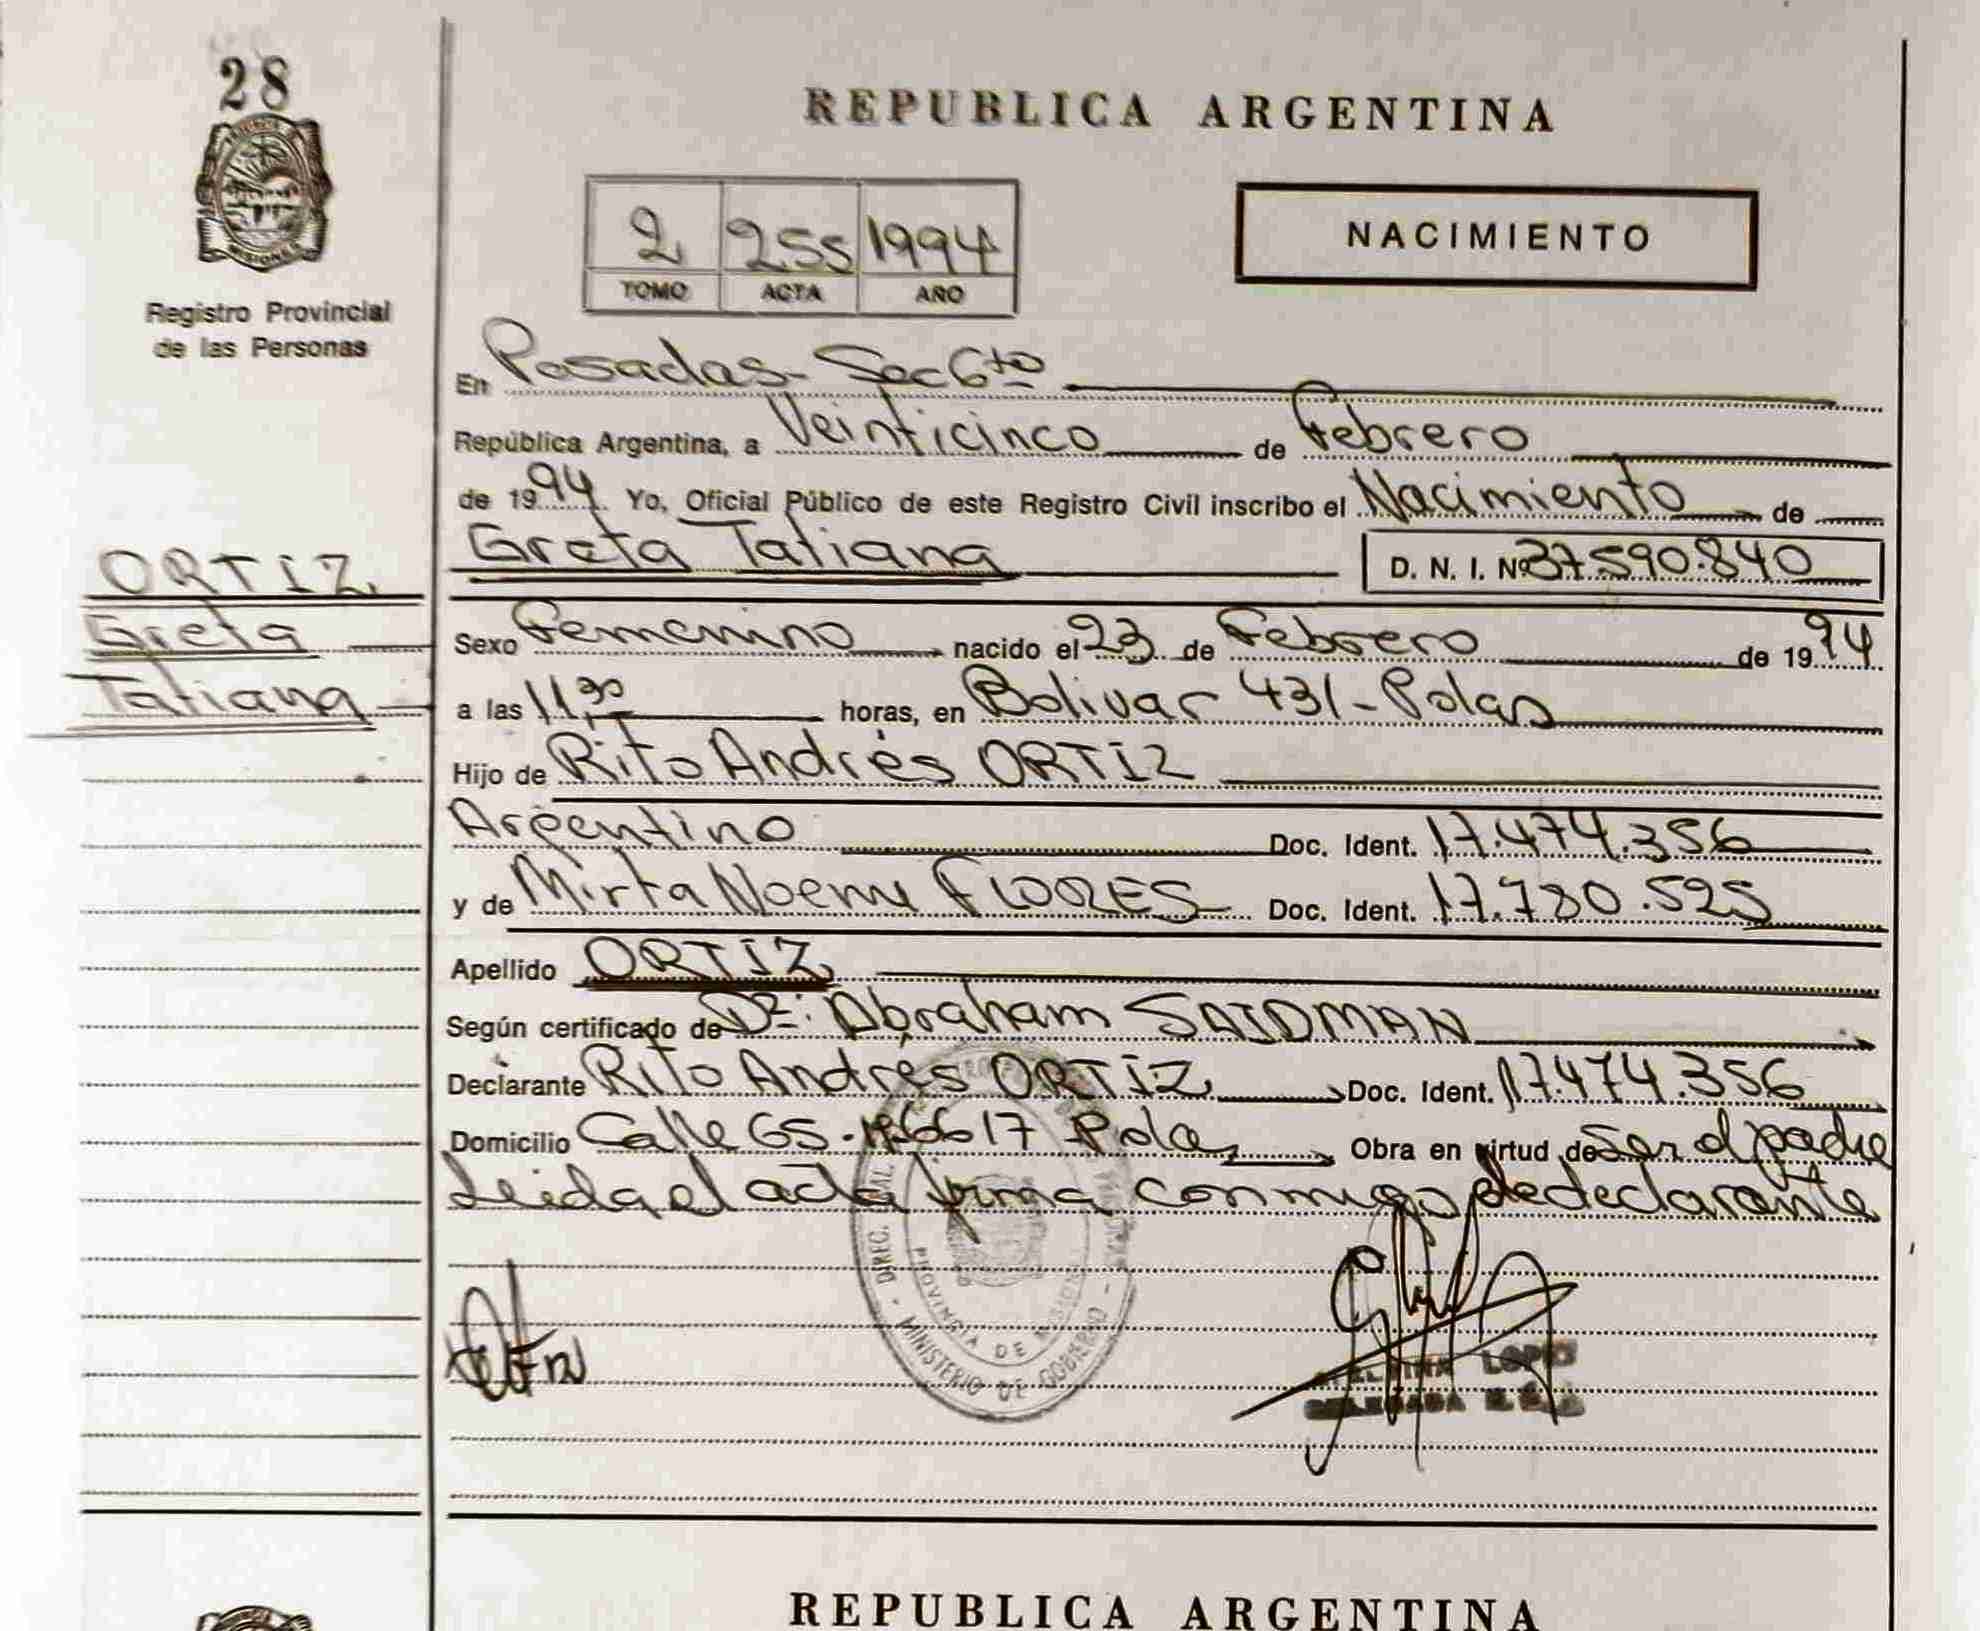 28
REPUBLICA ARGENTINA
2 255 1994
TOMO ACTA AÑO
NACIMIENTO
Registro Provincial
de las Personas
En Posadas - Sec 6ta
República Argentina, a Veinticinco de Febrero
de 1994 Yo, Oficial Público de este Registro Civil inscribo el Nacimiento de
ORTIZ
Greta
Tatiana
Greta Tatiana D. N. I. Nº 37.590.840
Sexo Femenino nacido el 23 de Febrero de 1994
a las 11,30 horas, en Bolivar 431 - Pdas
Hijo de Rito Andrés ORTIZ
Argentino Doc. Ident. 17.474.356
y de Mirta Noemi FLORES Doc. Ident. 17.780.525
Apellido ORTIZ
Según certificado de Dr: Abraham SAIDMAN
Declarante Rito Andrés ORTIZ Doc. Ident. 17.474.356
Domicilio Calle 65 - Nº 6617 Pdas Obra en virtud de ser el padre
Leida el acta firma conmigo el declarante
DIREC. GRAL
PROVINCIA DE MISIONES
MINISTERIO DE GOBIERNO
LOPEZ
DELEGADA
REPUBLICA ARGENTINA